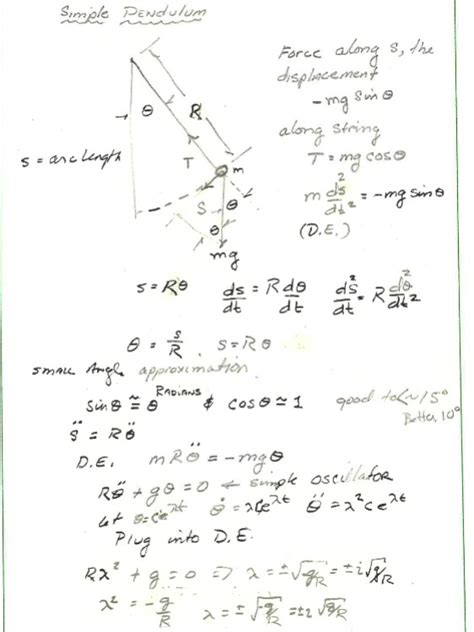 Simple Pendulum
Force along s, the
displacement
-mg sin θ
along string
T = mg cos θ
m d²s/dt² = -mg sin θ
(D.E.)
θ
R
s = arc length
T
m
S
θ
θ
mg
s = Rθ ds/dt = R dθ/dt d²s/dt² = R d²θ/dt²
θ = s/R , s = Rθ
small Angle approximation
Radians
sin θ ≅ θ & cos θ ≅ 1 good to <~15°
Better, 10°
s̈ = Rθ̈
D.E. mRθ̈ = -mgθ
Rθ̈ + gθ = 0 ← simple oscillator
Let θ = Ce^λt θ̇ = λCe^λt θ̈ = λ²Ce^λt
Plug into D.E.
Rλ² + g = 0 ⇒ λ = ±√-g/R = ±i√g/R
λ² = -g/R λ = ±√-g/R = ±i√g/R